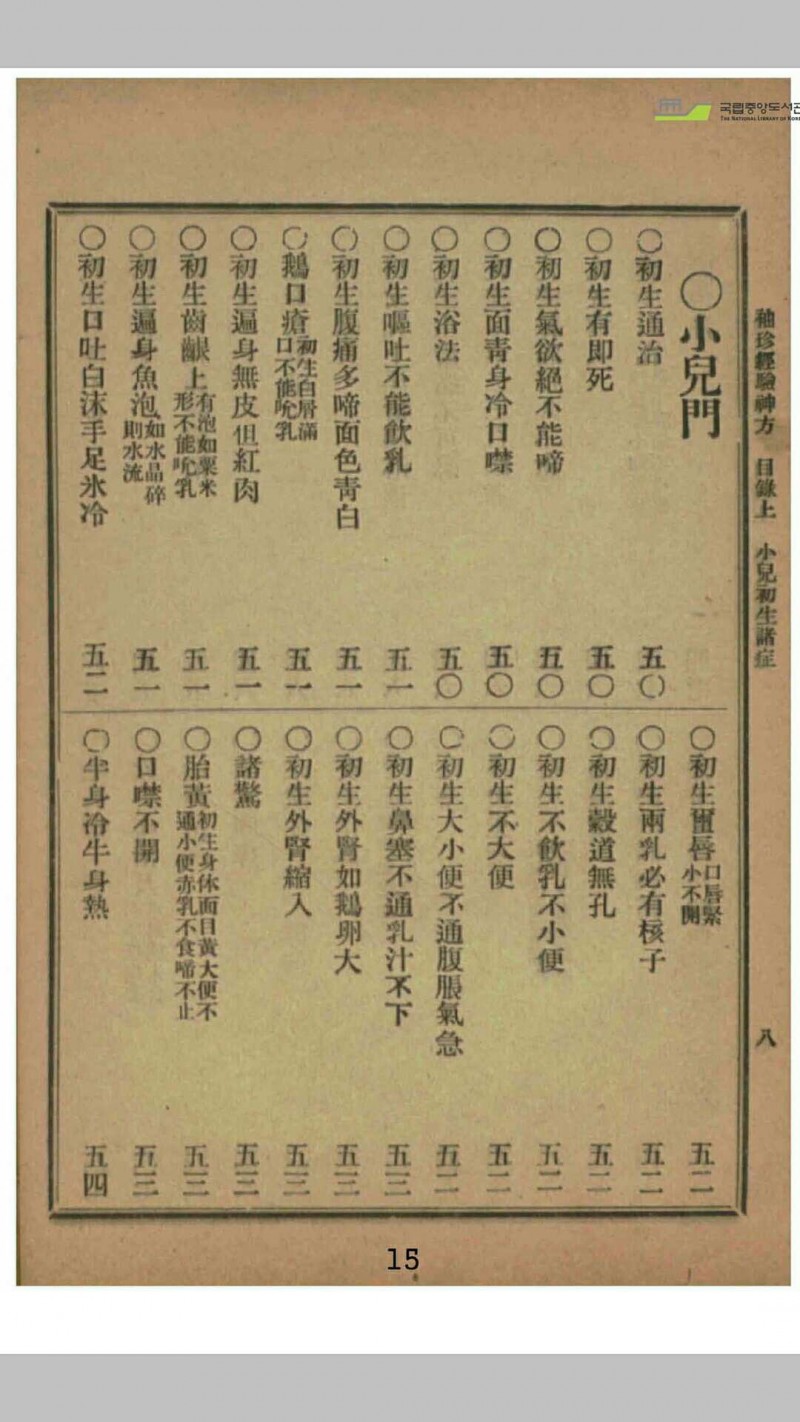 국립중앙도서관
THE NATIONAL LIBRARY OF KOREA
袖珍經驗神方 目錄上 小兒初生諸症 八
○小兒門
○初生通治 五〇
○初生有即死 五〇
○初生氣欲絕不能啼 五〇
○初生面靑身冷口噤 五〇
○初生浴法 五〇
○初生嘔吐不能飮乳 五一
○初生腹痛多啼面色靑白 五一
○鵝口瘡 初生白屑滿口不能吮乳 五一
○初生遍身無皮但紅肉 五一
○初生齒齦上 有泡如粟米形不能吮乳 五一
○初生遍身魚泡 如水晶碎則水流 五一
○初生口吐白沫手足氷冷 五二
○初生蠒唇 口唇緊小不開 五二
○初生兩乳必有核子 五二
○初生穀道無孔 五二
○初生不飮乳不小便 五二
○初生不大便 五二
○初生大小便不通腹脹氣急 五二
○初生鼻塞不通乳汁不下 五三
○初生外腎如鵝卵大 五三
○初生外腎縮入 五三
○諸驚 五三
○胎黃 初生身体面目黃大便不通小便赤乳不食啼不止 五三
○口噤不開 五三
○半身冷半身熱 五四
15